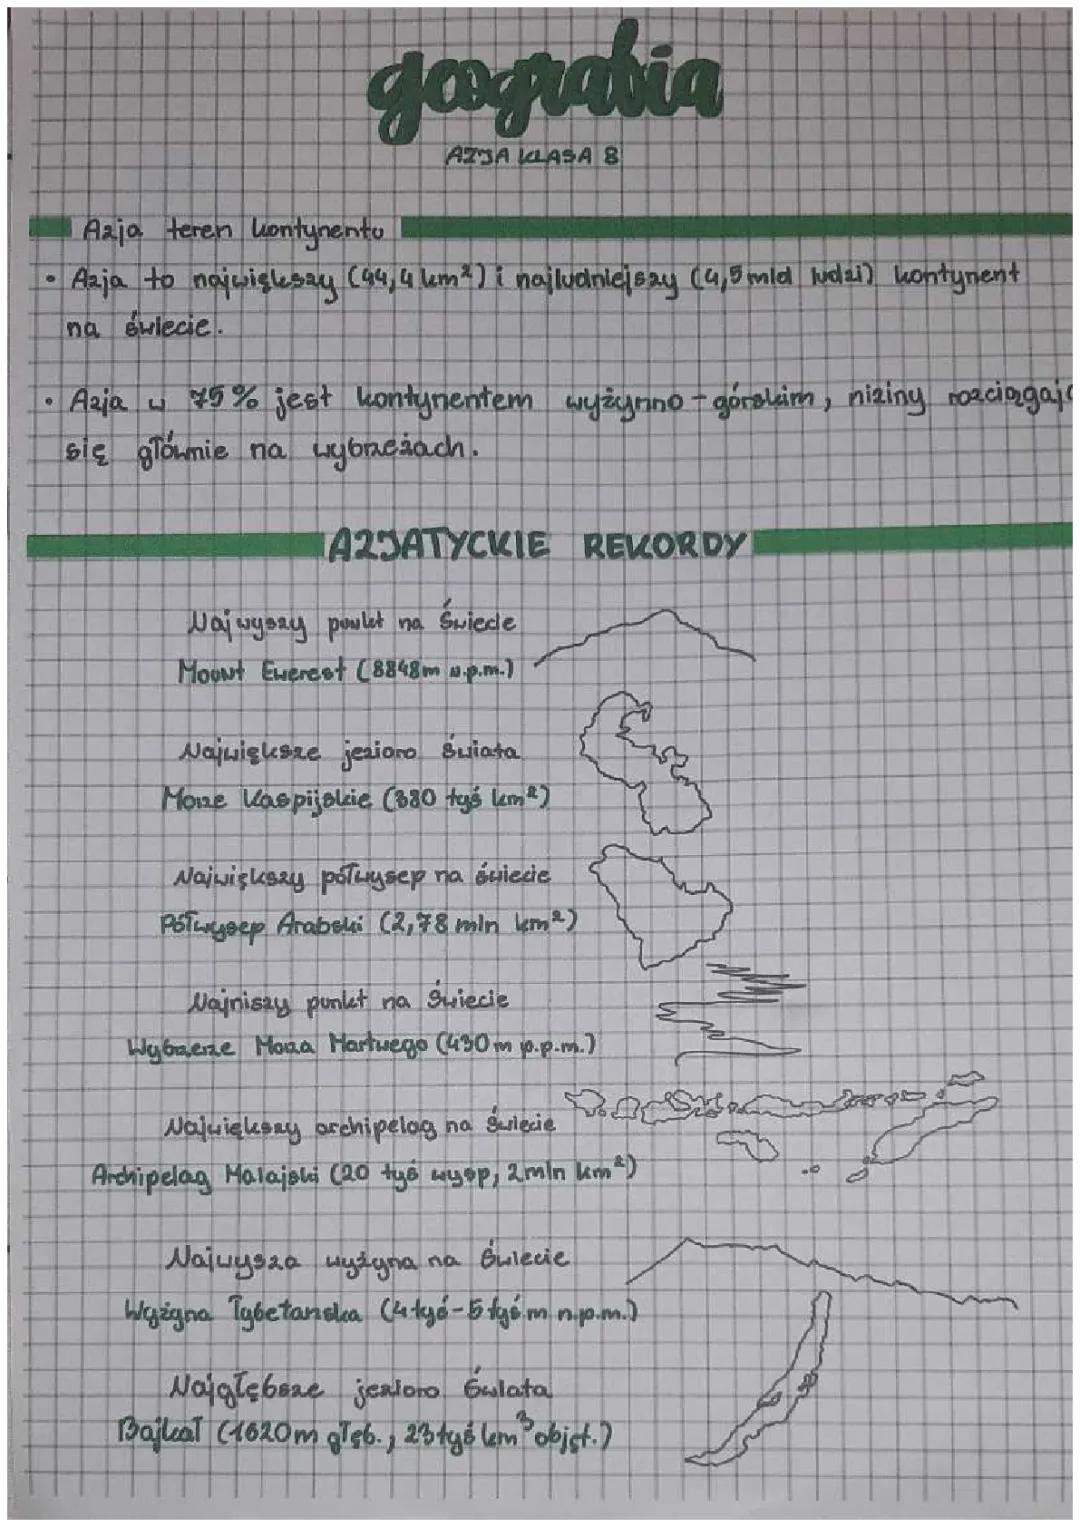 geografia
AZJA KLASA 8
Azja teren kontynentu
• Azja to największy (44,4 km²) i najludniejszy (4,5 mld ludzi) kontynent
na świecie.
• Azja w 75% jest kontynentem wyżynno-górskim, niziny rozciągają
się głównie na wybrzeżach.
AZJATYCKIE REKORDY
Najwyszy punkt na Świecie
Mount Everest (8848m n.p.m.)
Największe jezioro świata
Morze Kaspijskie (380 tyś km²)
Największy półwysep na świecie
Półwysep Arabski (2,78 mln km²)
Najniszy punkt na Świecie
Wybrzerze Morza Martwego (430m p.p.m.)
Największy archipelag na Świecie
Archipelag Malajski (20 tyś wysp, 2mln km²)
Najwysza wyżyna na Świecie
Wyżyna Tybetańska (4 tyś-5 tyś m n.p.m.)
Najgłębsze jezioro Świata
Bajkał (1620m głęb., 23 tyś km³ objęt.)